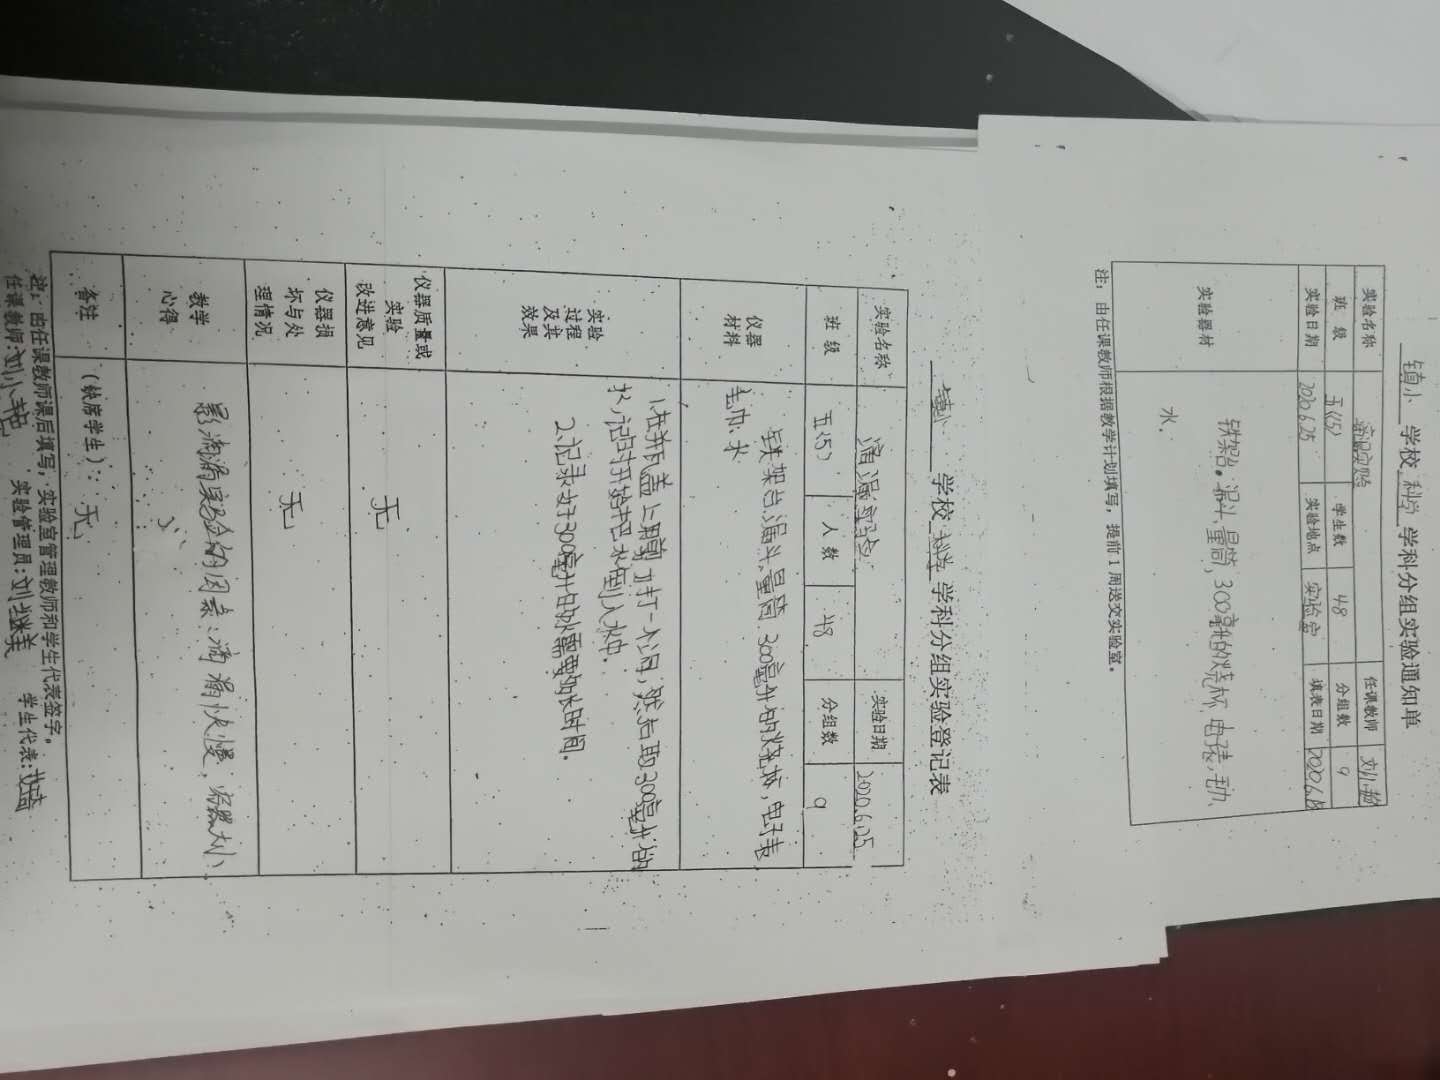 镇小 学校 科学 学科分组实验通知单
实验名称 滴漏实验 任课教师
班 级 五(5) 学生数 48 分组数 9
实验日期 2020.6.25 实验地点 实验室 填表日期 2020.6.18
实验器材 铁架台。漏斗,量筒,300毫升的烧杯,电子表,毛巾、
水、
注:由任课教师根据教学计划填写,提前1周送交实验室。
镇小 学校 科学 学科分组实验登记表
实验名称 滴漏实验 实验日期 2020.6.25
班 级 五(5) 人 数 48 分组数 9
仪器
材料
铁架台.漏斗.量筒 300毫升的烧杯,电子表
毛巾.水
实验
过程
及其
效果
1.在并瓦盖上用 打一小洞,然后取300毫升的
水,记时开始把水倒入水中.
2.记录好300毫升的水需要多长时间.
仪器质量或
实验
改进意见
无
仪器损
坏与处
理情况
无
教学
心得
影滴漏实验的因素、滴漏快慢,容器大小、
备注 (缺席学生):无
注:由任课教师课后填写,实验室管理教师和学生代表签字。
任课教师:刘小 实验管理员:刘继美 学生代表: